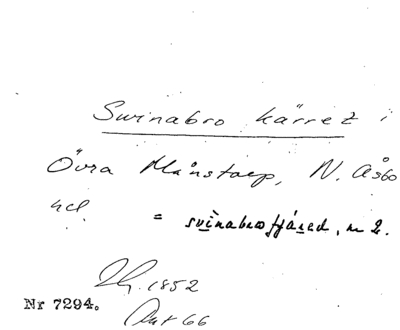 Swinabro kärret i
Öfra Månstorp, N. Åsbo
hd
= svinabrofjáred, n 2.
1852
Nr 7294.
Akt 66